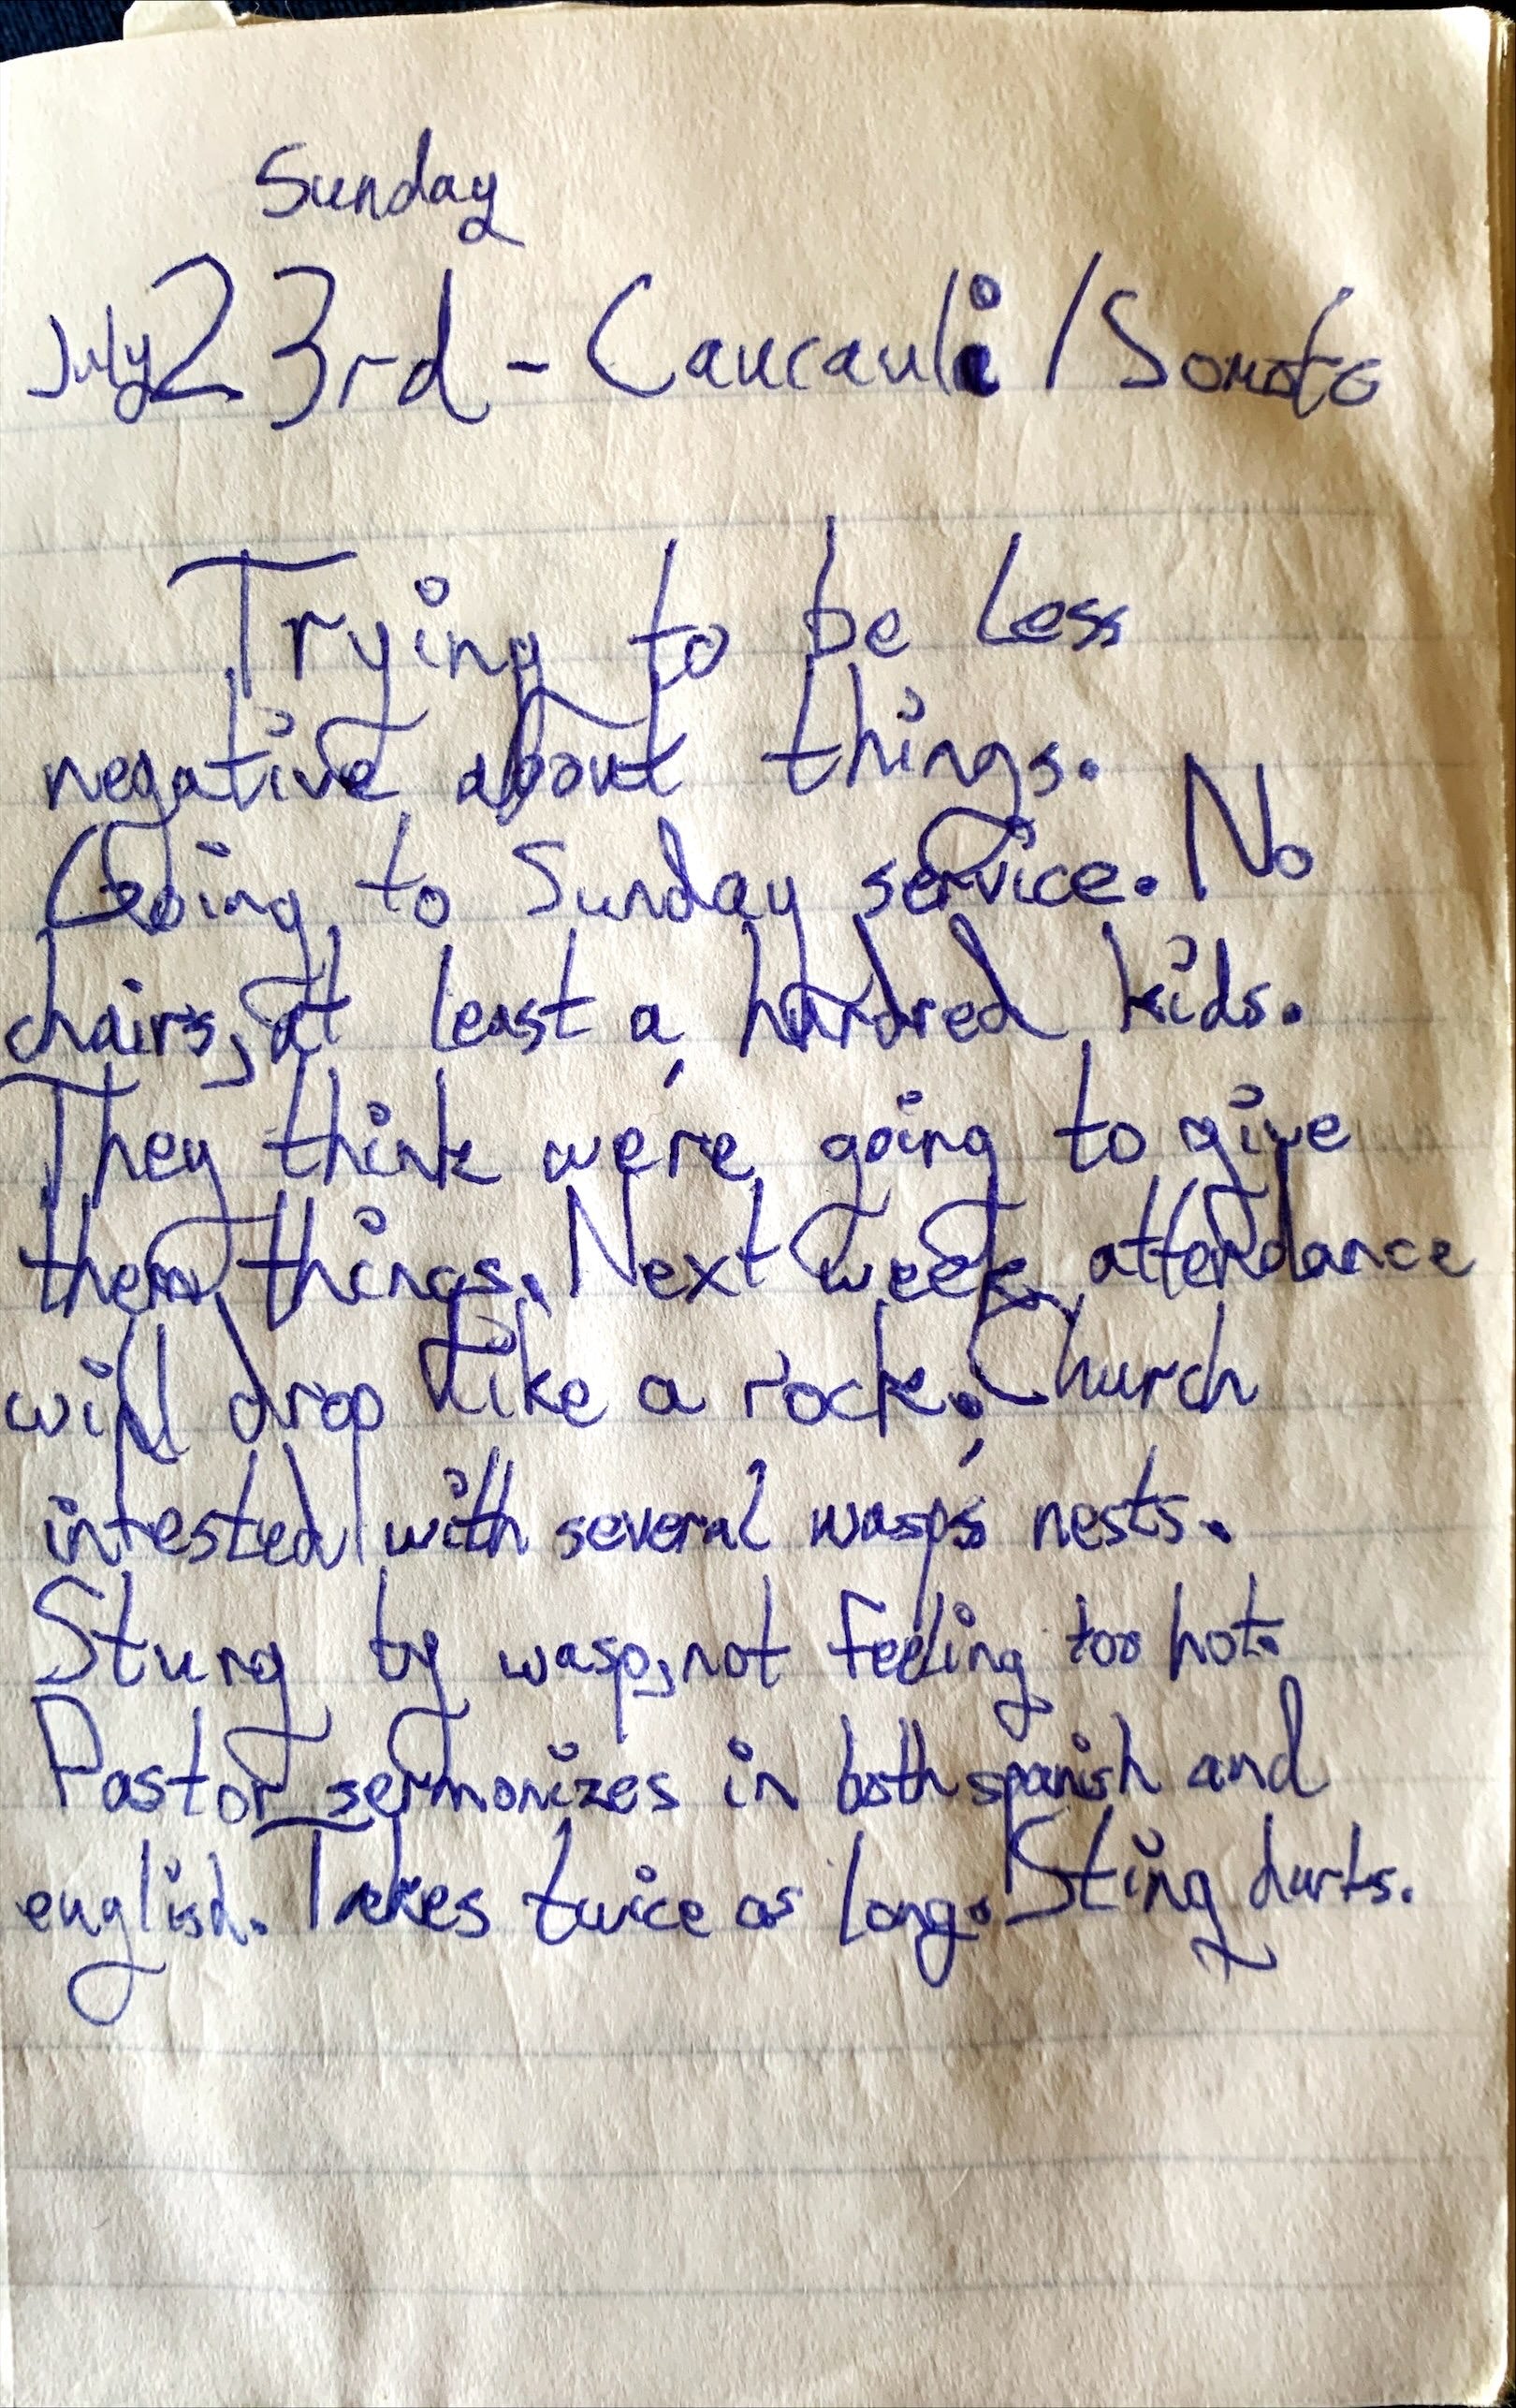 Sunday
July 23rd - Caucauli / Somoto
Trying to be less
negative about things.
Going to Sunday service. No
chairs, at least a hundred kids.
They think we're going to give
them things. Next week, attendance
will drop like a rock. Church
infested with several wasp's nests.
Stung by wasp, not feeling too hot.
Pastor sermonizes in both spanish and
english. Takes twice as long. Sting hurts.